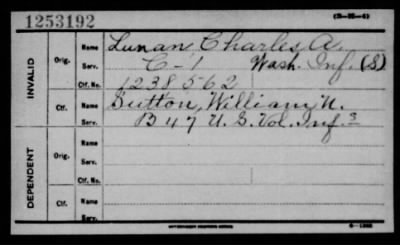 1253192
(3-35-4)
INVALID
Orig. Name Lunan, Charles A.
Serv. C-1 Wash. Inf. (S)
Ctf. No. 1238562
Ctf. Name Sutton, William N.
Serv. B 47 U. S. Vol. Inf.
DEPENDENT
Orig. Name
Serv.
Ctf. No.
Ctf. Name
Serv.